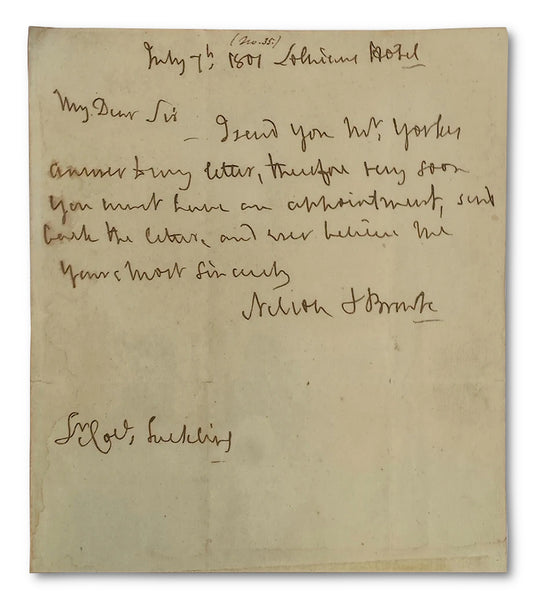 (No. 35.)
July 7th, 1801 Lothians Hotel
My Dear Sir
I send you Mr. Yorkes
answer to my letter, therefore very soon
you must have an appointment, send
back the letter, and ever believe me
Yours Most Sincerely
Nelson & Bronte
Suckling